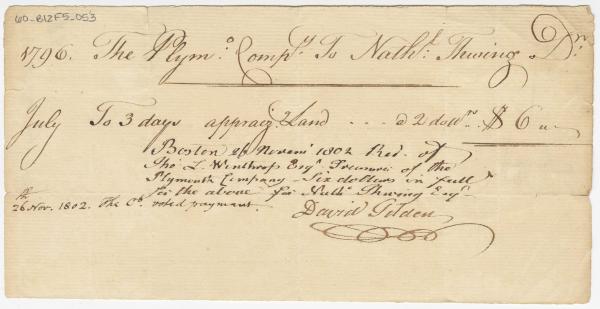 60_B12F5_053
1796. The Plymo Compy To Nathl Thwing Dr
July To 3 days appraizg Land - - - a 2 dollrs - $ 6 "
Boston 26 Novemr 1802 Recd of
Tho L. Winthrop Esqr Treasurer of the
Plymouth Company - Six dollars in full
for the above for Nathl Thwing Esqr
26th Nov. 1802. The Co voted payment.
David Gilden